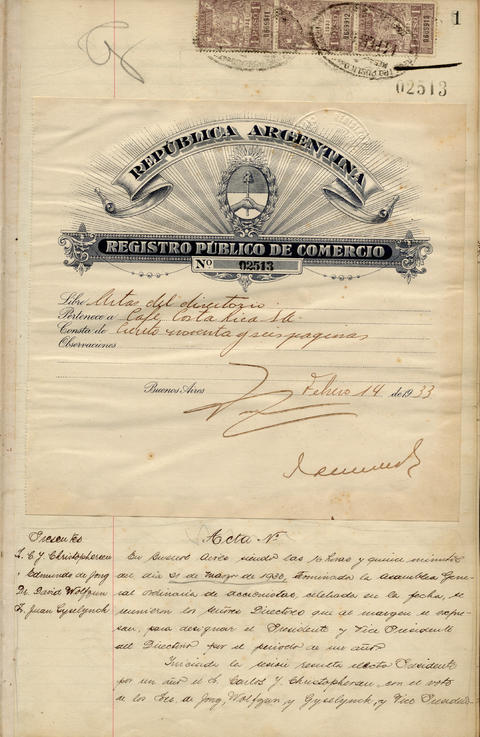 1
02513
REPÚBLICA ARGENTINA
REGISTRO PÚBLICO DE COMERCIO
Nº 02513
Libro Actas del directorio.
Pertenece a Café Costa Rica S.A.
Consta de Ciento noventa y seis paginas
Observaciones
Buenos Aires Febrero 14 de 1933
Presentes
S. C. J. Christophersen
" Edmundo de Jong
Dr. David Wolfsun
S. Juan Gyselynck
Acta Nº
En Buenos Aires siendo las 10 horas y quince minutos
del día 31 de Marzo de 1932, terminada la asamblea Gene-
ral ordinaria de accionistas, celebrada en la fecha, se
reunieron los señores Directores que al margen se expre-
san, para designar el Presidente y Vice Presidente
del Directorio por el periodo de un año.
Iniciada la sesión resulta electo Presidente
por un año el S. Carlos J. Christophersen, con el voto
de los Sres. de Jong, Wolfsun, y Gyselynck, y Vice Presiden-